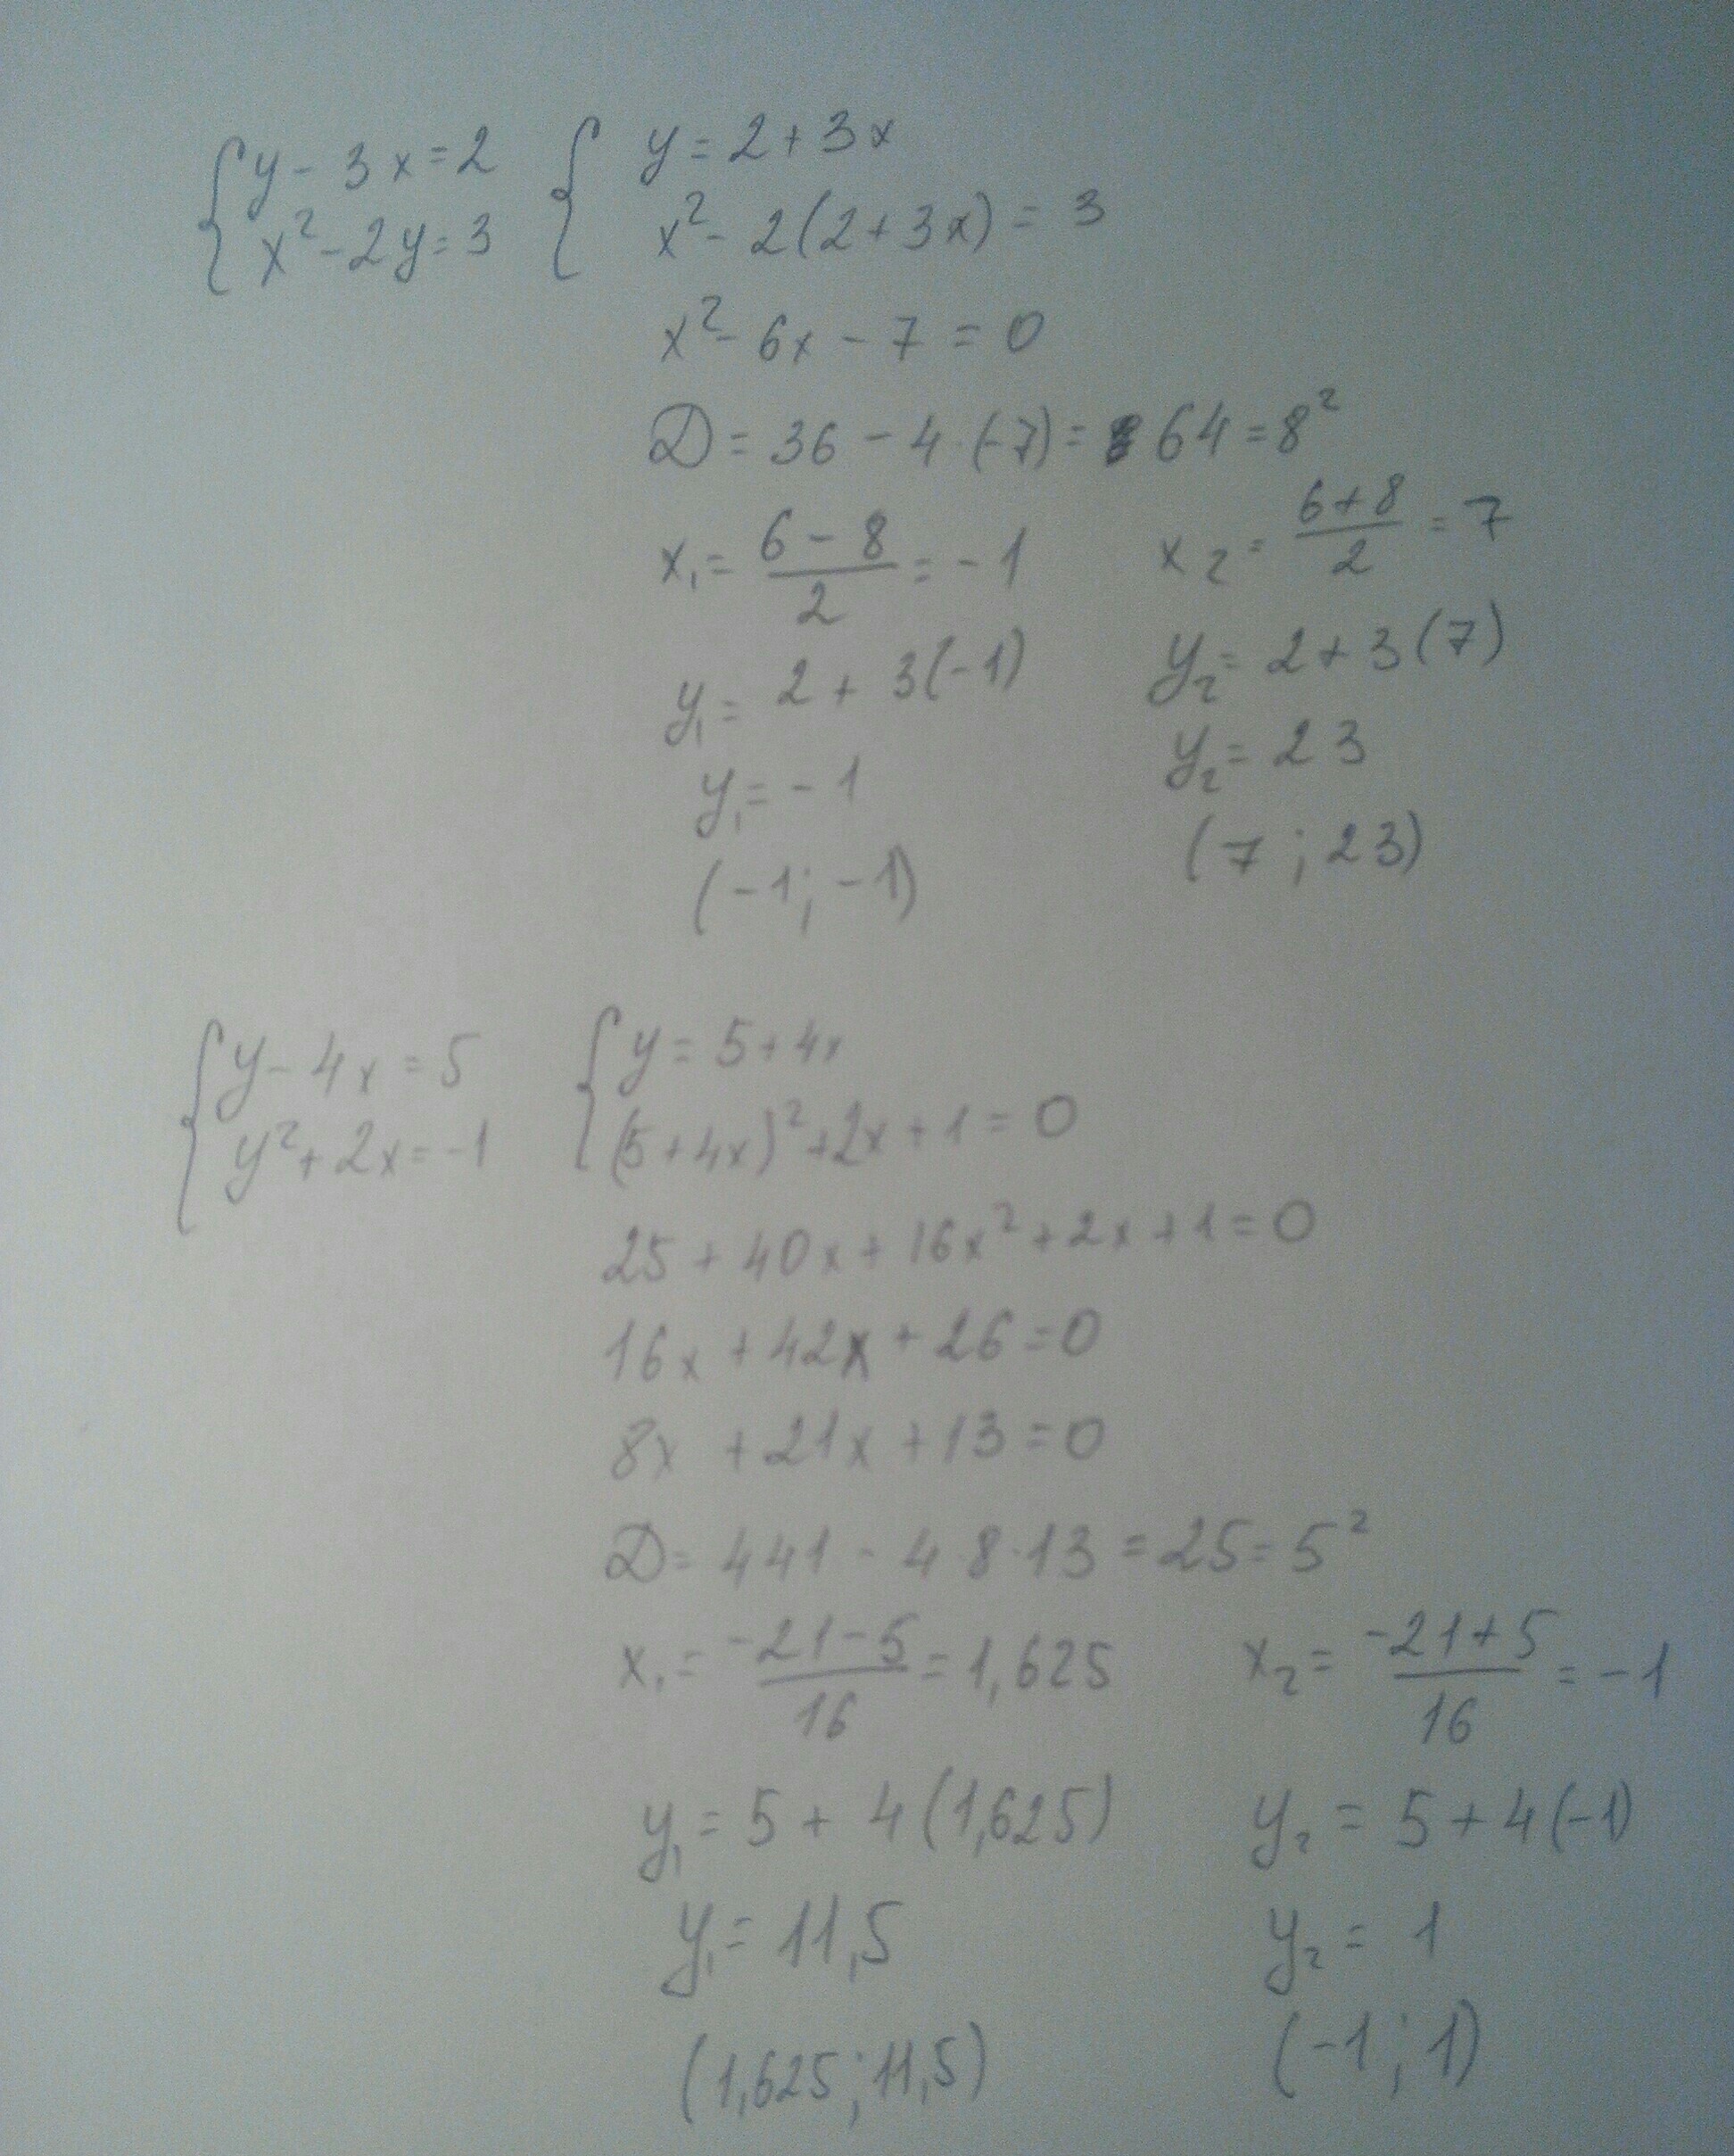 { y - 3x = 2 { y = 2 + 3x
x² - 2y = 3 x² - 2(2 + 3x) = 3
x² - 6x - 7 = 0
D = 36 - 4·(-7) = 64 = 8²
x₁ = (6 - 8)/2 = -1 x₂ = (6 + 8)/2 = 7
y₁ = 2 + 3(-1) y₂ = 2 + 3(7)
y₁ = -1 y₂ = 23
(-1; -1) (7; 23)
{ y - 4x = 5 { y = 5 + 4x
y² + 2x = -1 (5 + 4x)² + 2x + 1 = 0
25 + 40x + 16x² + 2x + 1 = 0
16x + 42x + 26 = 0
8x + 21x + 13 = 0
D = 441 - 4·8·13 = 25 = 5²
x₁ = (-21 - 5)/16 = 1,625 x₂ = (-21 + 5)/16 = -1
y₁ = 5 + 4(1,625) y₂ = 5 + 4(-1)
y₁ = 11,5 y₂ = 1
(1,625; 11,5) (-1; 1)